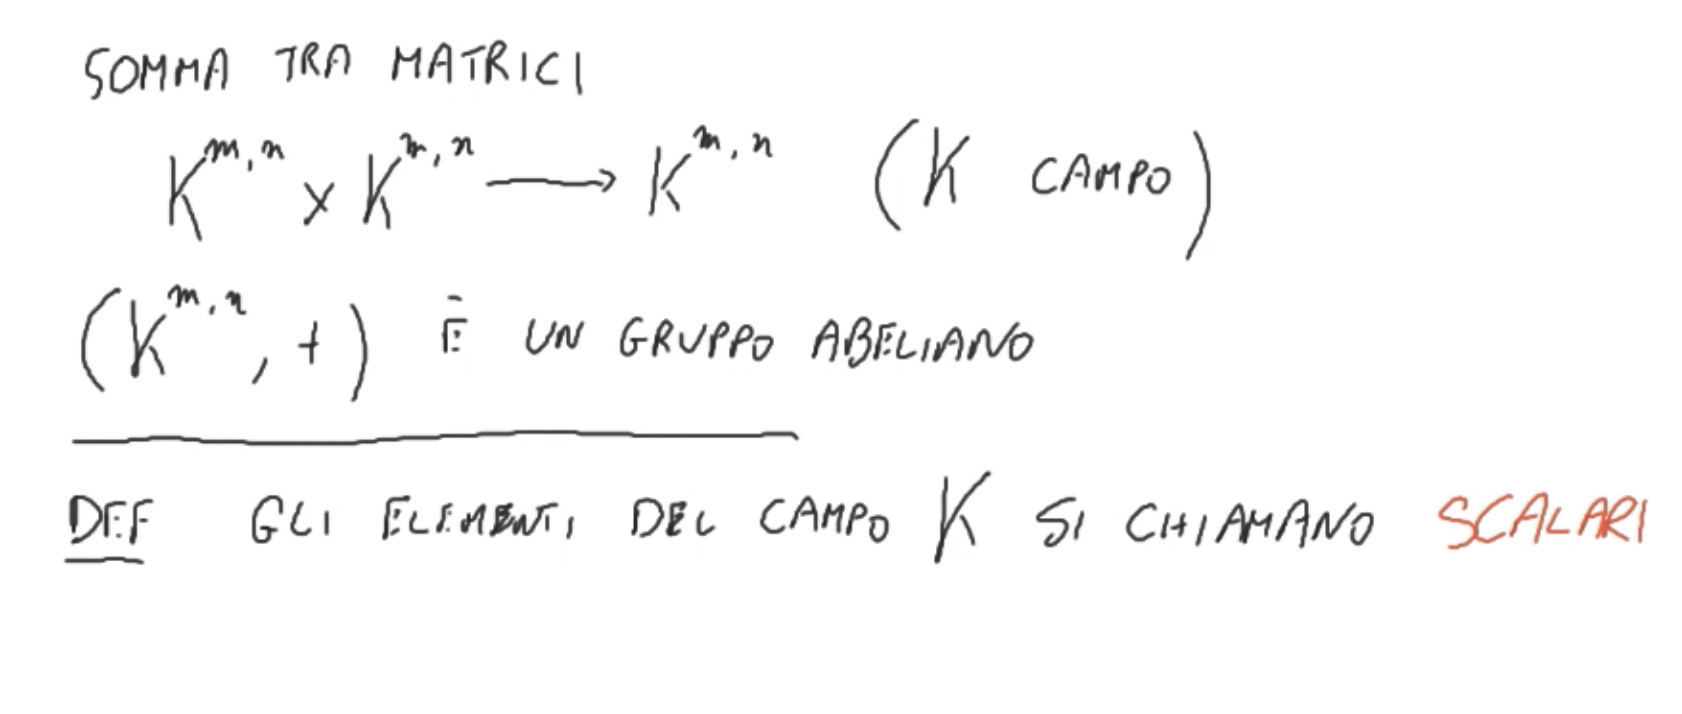 SOMMA TRA MATRICI
K^{m,n} × K^{m,n} ⟶ K^{m,n} (K CAMPO)
(K^{m,n}, +) È UN GRUPPO ABELIANO
DEF GLI ELEMENTI DEL CAMPO K SI CHIAMANO SCALARI